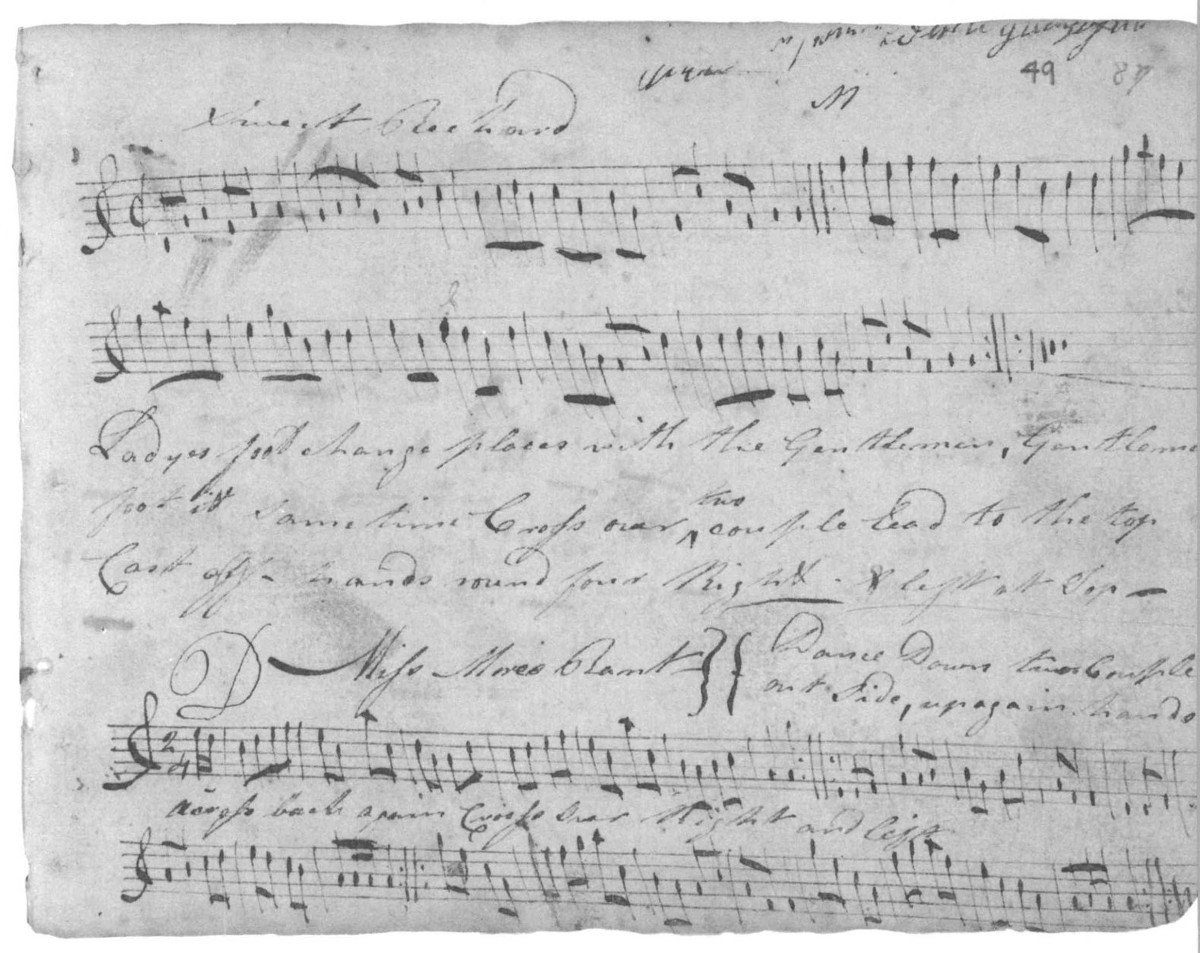 49 87
M
Sweet Richard
Ladyes foot change places with the Gentlemen, Gentleme
foot it same time Cross over two couple lead to the top
Cast off - hands round four Right & left at Top -
D Miss Mores Rant } { Dance Down two Couple
out Side, up again hands
2/4
across back again Cross over Right and left